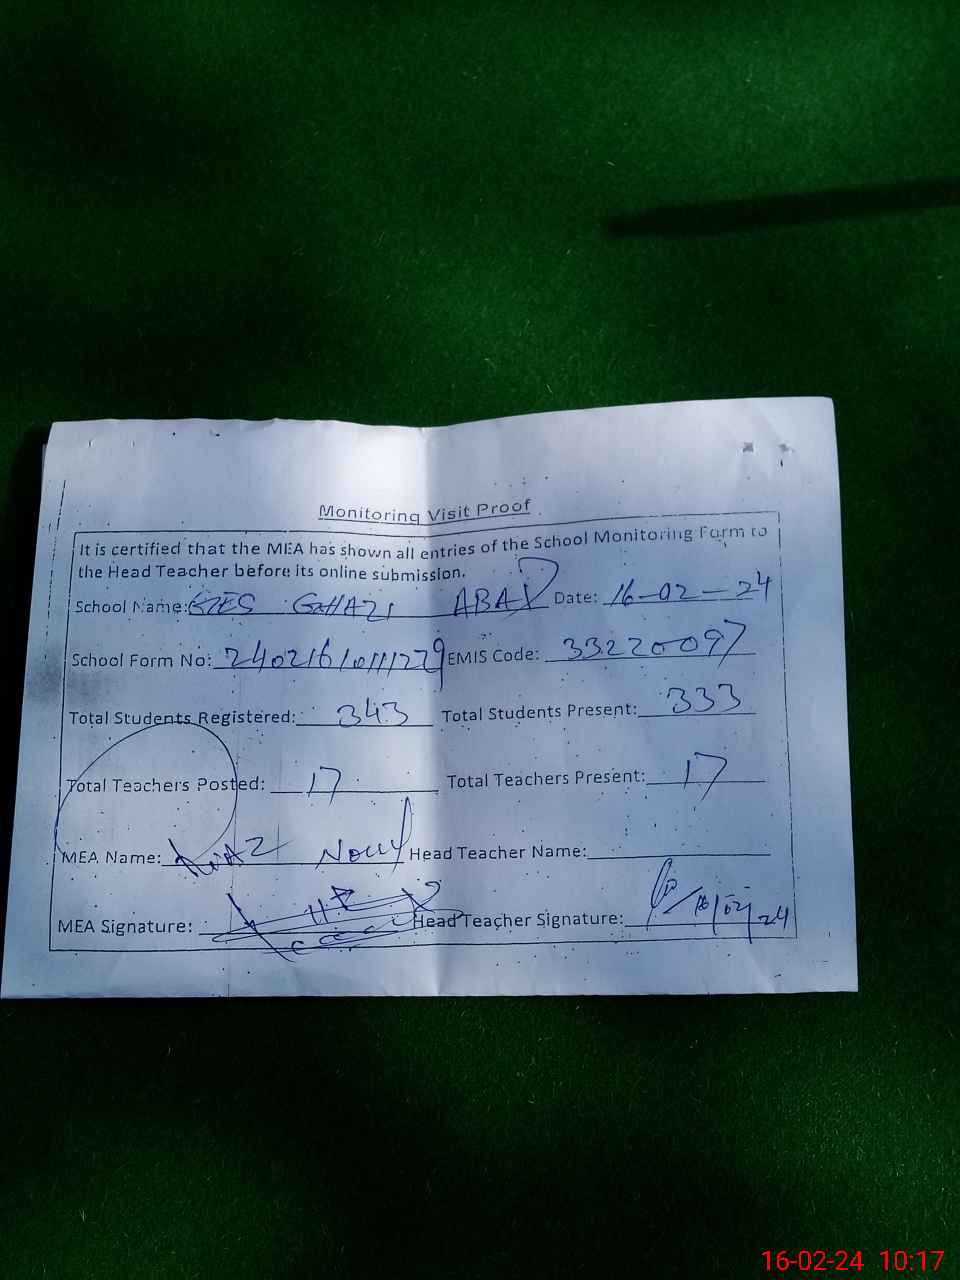 Monitoring Visit Proof
It is certified that the MEA has shown all entries of the School Monitoring Form to
the Head Teacher before its online submission.
School Name: GHAZI ABAD Date: 16-02-24
School Form No: EMIS Code: 33220097
Total Students Registered: 343 Total Students Present: 333
Total Teachers Posted: 17 Total Teachers Present: 17
MEA Name: Head Teacher Name:
MEA Signature: Head Teacher Signature: 16/02/24
16-02-24 10:17